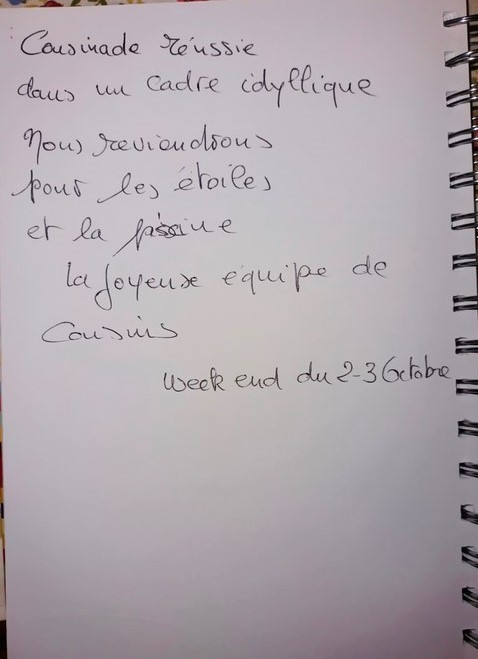 Cousinade réussie
dans un cadre idyllique
Nous reviendrons
pour les étoiles
et la piscine
la joyeuse équipe de
Cousins
Week end du 2-3 Octobre